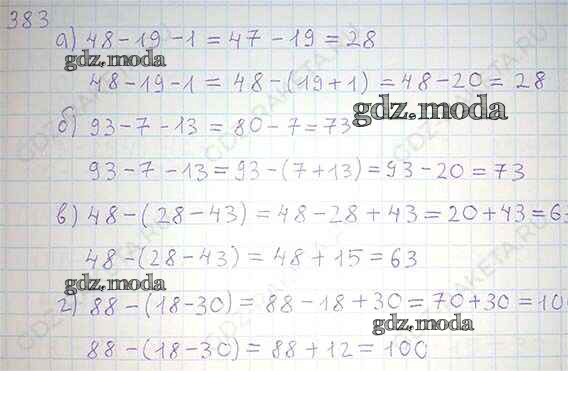 383
а) 48-19-1=47-19=28
gdz.moda
48-19-1=48-(19+1)=48-20=28
gdz.moda
б) 93-7-13=80-7=73
93-7-13=93-(7+13)=93-20=73
в) 48-(28-43)=48-28+43=20+43=63
48-(28-43)=48+15=63
gdz.moda
г) 88-(18-30)=88-18+30=70+30=100
gdz.moda
88-(18-30)=88+12=100